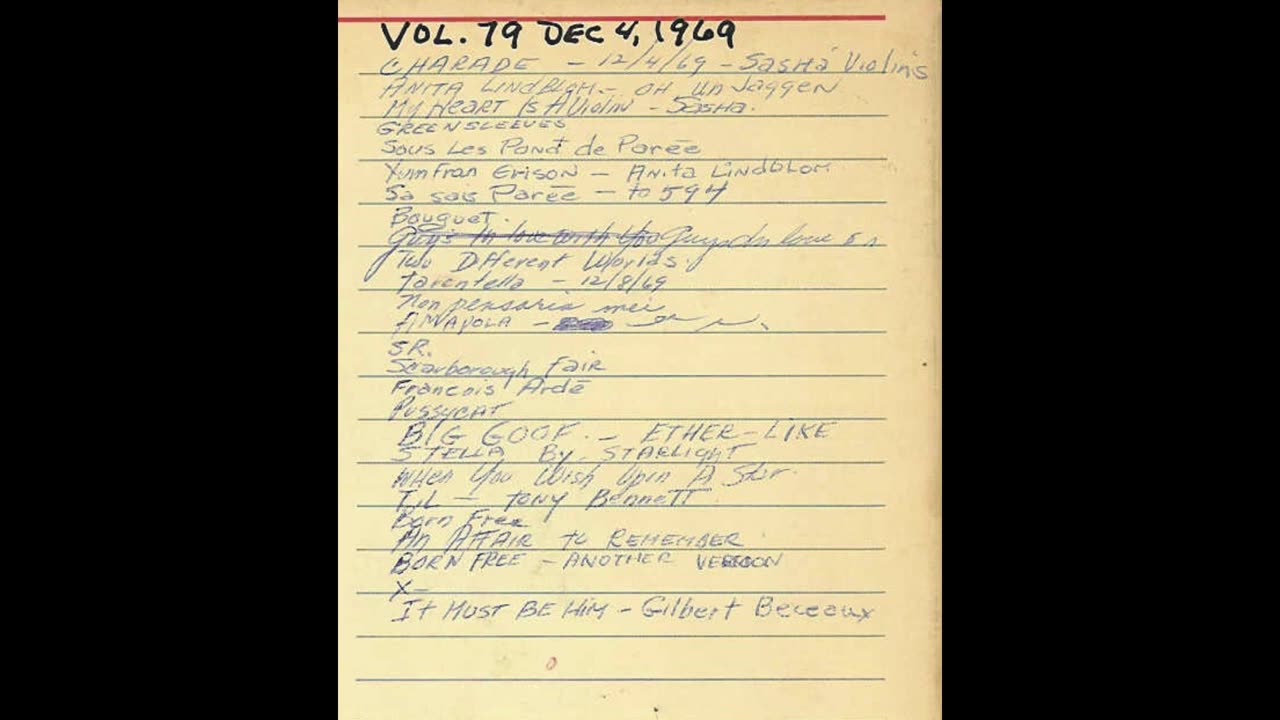 VOL. 79 DEC 4, 1969
CHARADE - 12/4/69 - Sasha Violins
ANITA LINDBLOM - OH un Jaggen
My HEART IS A Violin - SASHA.
GREENSLEEVES
Sous Les Pont de Parēe
Yum Fran Erison - Anita Lindblom
Sa sais Parēe - to 594
Bouquet.
Guy's In love with You Guys In love
Two Different Worlds.
Tarentella - 12/8/69
Non pensaria mei
AMAPOLA -
S.R.
Scarborough Fair
Francois Ardē
PUSSYCAT
BIG GOOF. - ETHER-LIKE
STELLA By. STARLIGHT
When You Wish Upon A Star.
T.L - TONY BENNETT
Born Free
AN AFFAIR to REMEMBER
BORN FREE - ANOTHER VERSION
X-
It MUST BE HIM - Gilbert Beceaux